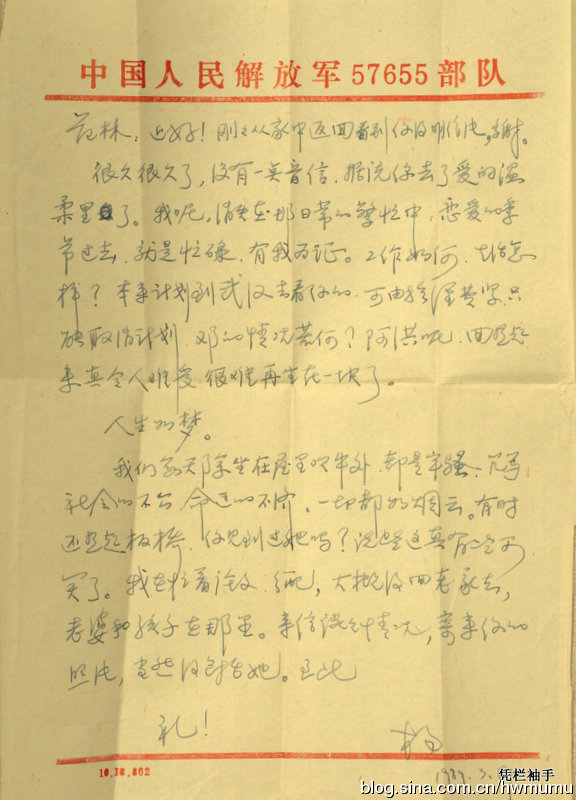 中国人民解放军57655部队
林：近好！刚刚从家中返回看到你的明信片，
很久很久了，没有一点音信，据说你去了爱的温
柔里了。我呢，消失在那日常的繁忙中，恋爱的季
节过去，就是忙碌，有我为证。工作如何，生活怎
样？本来计划到武汉去看你的，可由于经费只
取消计划，邓的情况若何？阿洪呢，回想起
来真令人难受，很难再生在一块了。
人生的梦。
我们每天除坐在屋里吹牛外，都是牢骚，
社会的不公，命运的不，一切都如烟云。有时
还想起板桥，你见到过她吗？说起这真有些可
笑了。我在忙着论文，分配，大概得回老家去，
老婆和孩子在那里。来信谈谈情况，寄来你的
照片，当然得结合她。至此
礼！
杨
10.18.862
1987.3.
凭栏袖手
blog.sina.com.cn/hwmumu